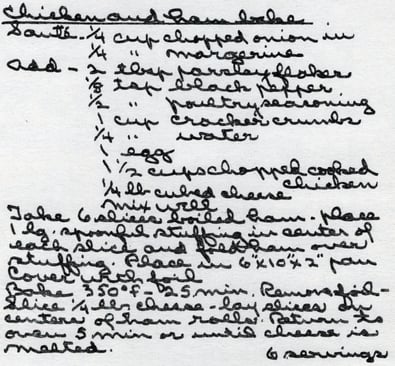 Chicken and ham bake
Sauté - 1/4 cup chopped onion in
1/4 " margerine
add - 2 tbsp parsley flakes
1/8 tsp black pepper
1/2 " poultry seasoning
1 cup cracker crumbs
1/4 " water
1 egg
1 1/2 cups chopped cooked
chicken
1/4 lb cubed cheese
mix well
Take 6 slices boiled ham - place
1 lg. spoonful stuffing in center of
each slice and fold ham over
stuffing. Place in 6"x10"x2" pan
Cover with foil
Bake 350°F - 25 min. Remove foil -
slice 1/4 lb cheese - lay slices on
centers of ham rolls. Return to
oven 5 min or until cheese is
melted.
6 servings